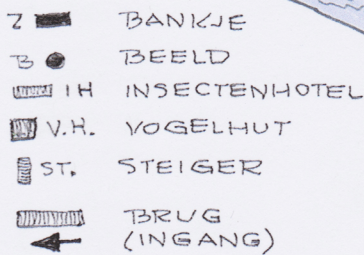 Z BANKJE
B BEELD
IH INSECTENHOTEL
V.H. VOGELHUT
ST. STEIGER
BRUG
(INGANG)